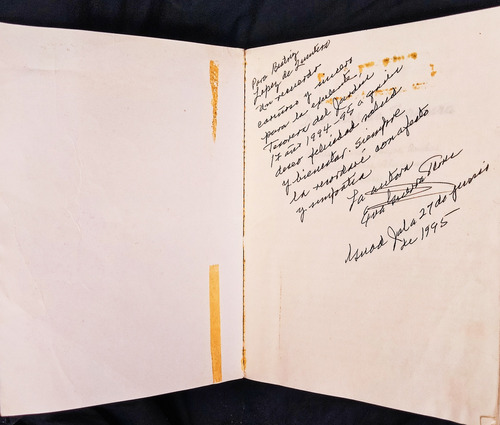 Para Beatriz
López de Quintero
Un recuerdo
cariñoso y sincero
para la excelente
Tesorera del Jardín
17 año 1994-95 a quien
deseo felicidad salud
y bienestar. Siempre
la recordaré con afecto
y simpatía
La autora
Guad Jal a 27 de junio
de 1995